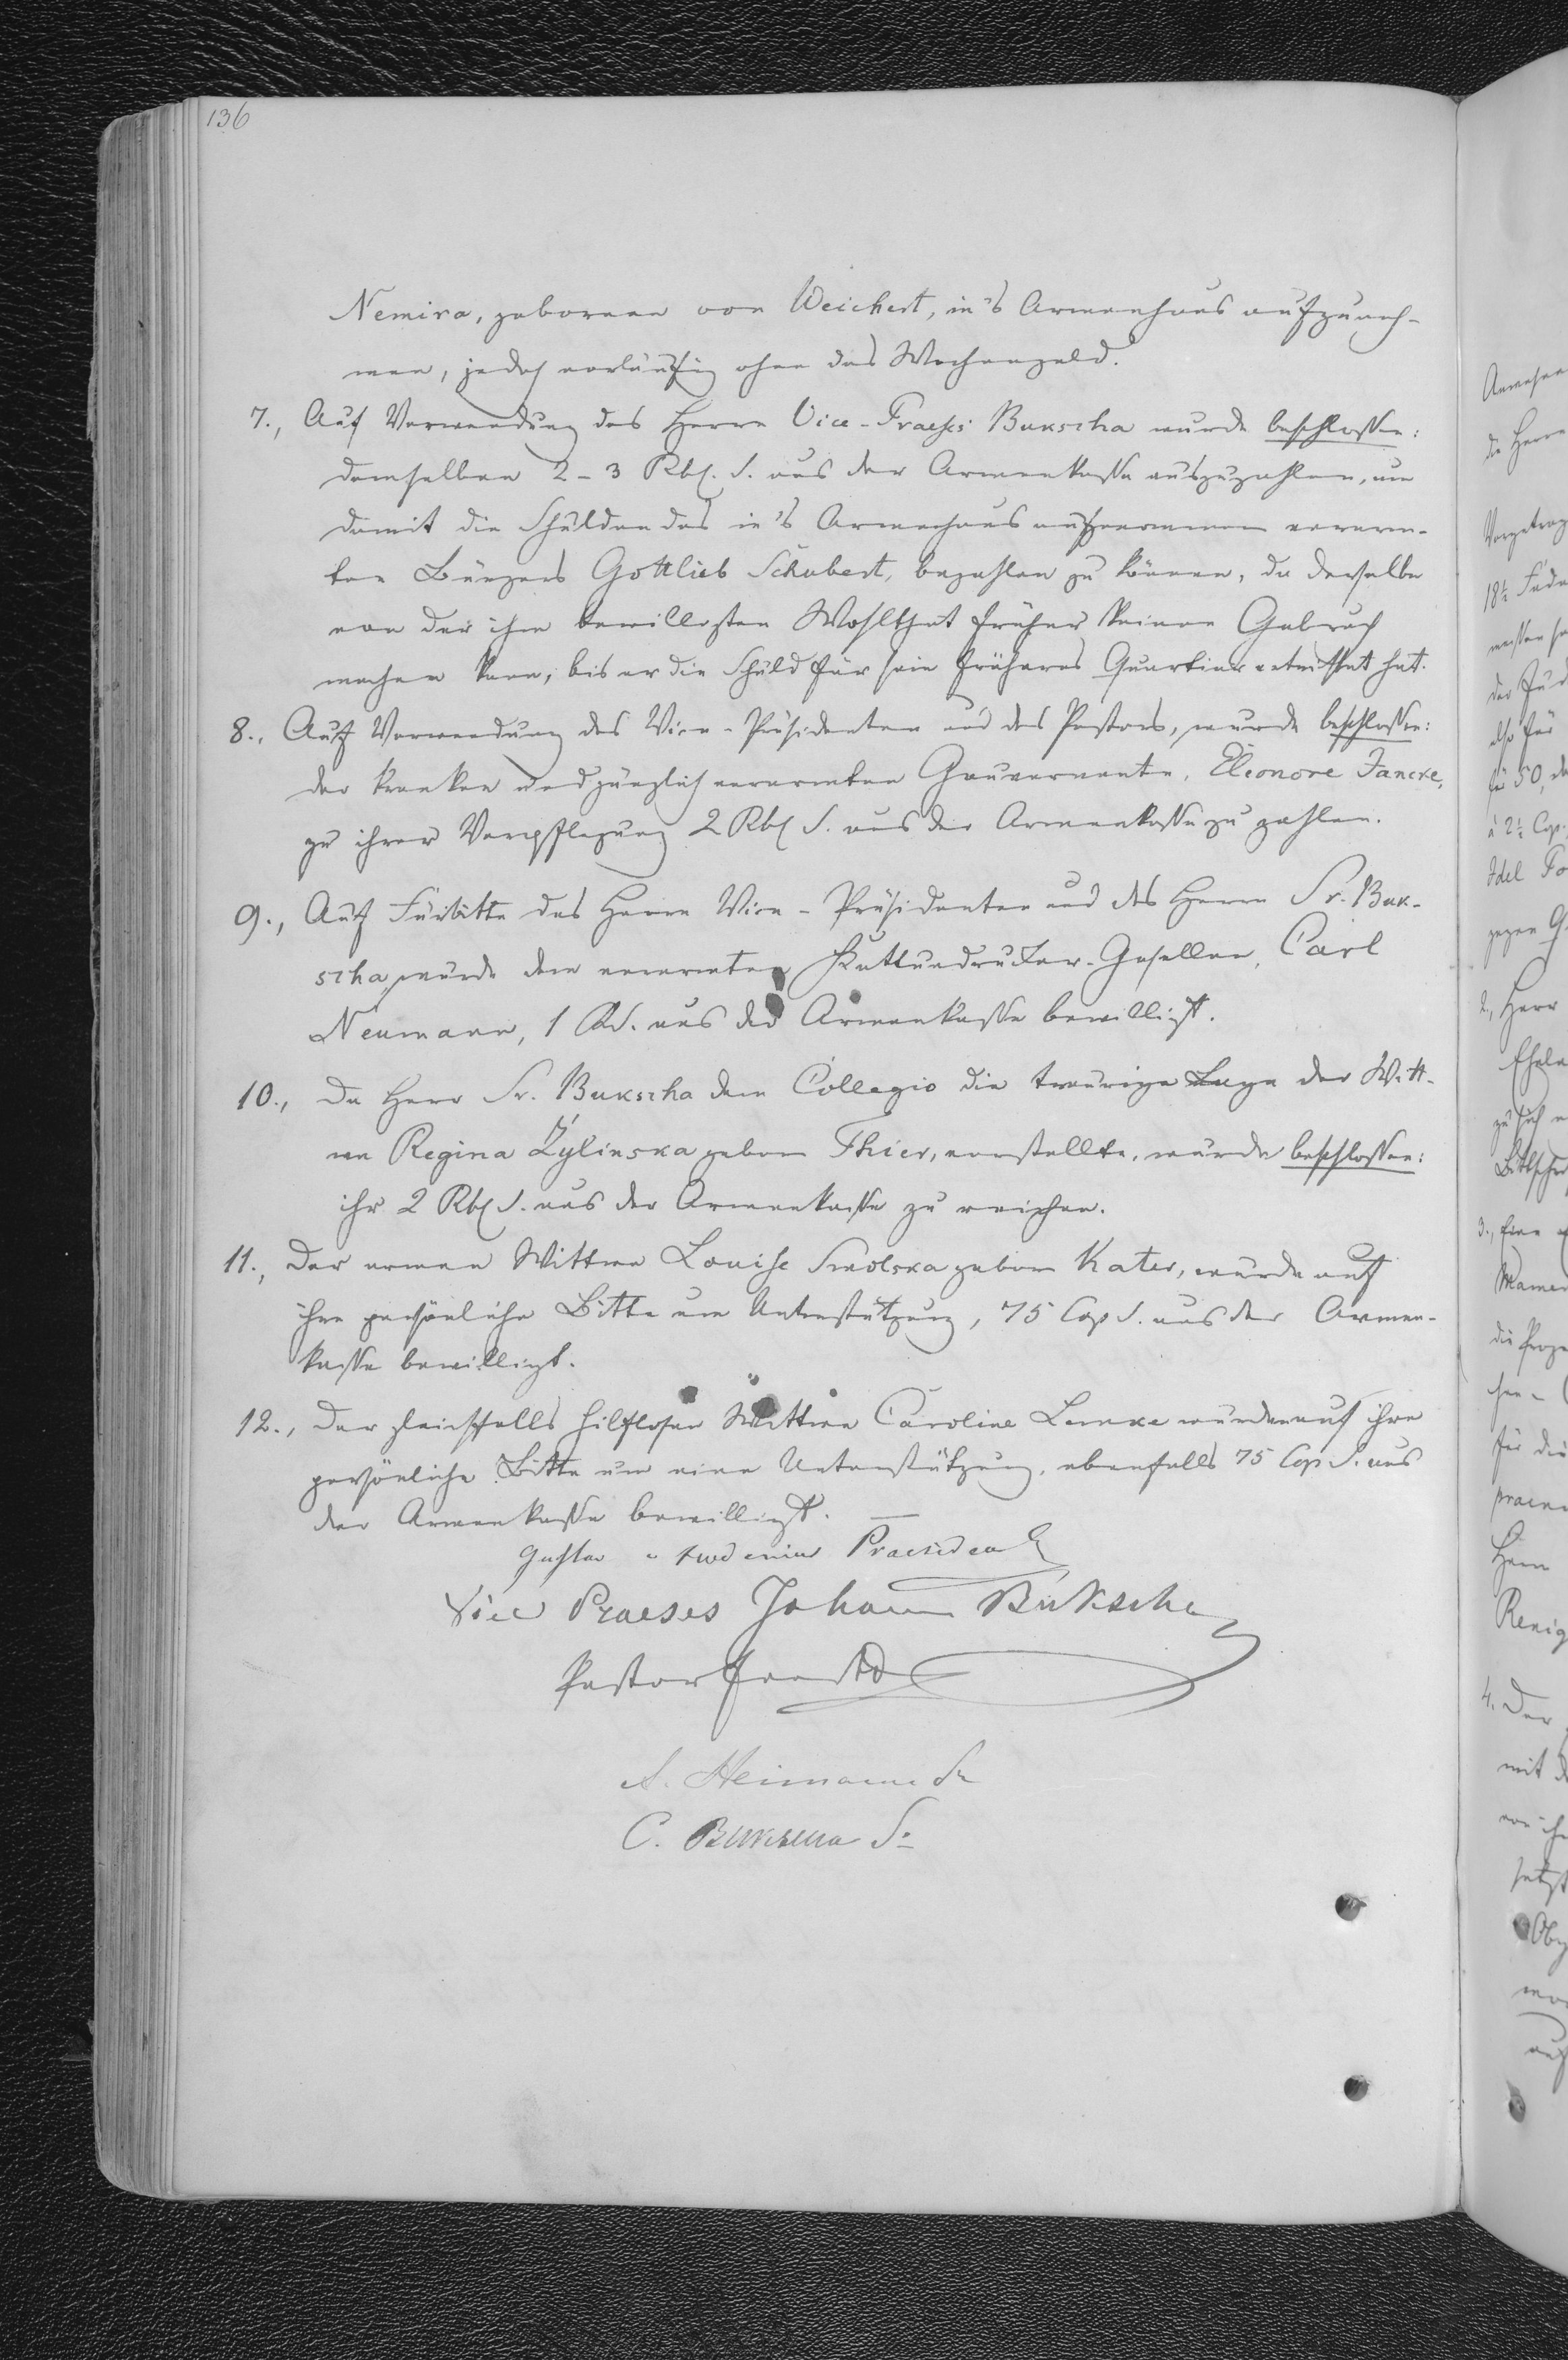 136
Nemira, geborene von Weichert, in's Armenhaus aufzuneh-
men, jedoch vorläufig ohne das Wochengeld.
7., Auf Verwendung des Herrn Vice-Praeses Bukscha wurde beschlossen:
demselben 2-3 Rbl. S. aus der Armenkasse auszuzahlen, um
damit die Schulden des in's Armenhaus aufgenommenen verarm-
ten Bürgers Gottlieb Schubert, bezahlen zu können, da derselbe
von der ihm bewilligten Wohlthat früher keinen Gebrauch
machen kann, bis er die Schuld für sein früheres Quartier entrichtet hat.
8., Auf Verwendung des Vice-Präsidenten und des Pastors, wurde beschlossen:
der kranken und gänzlich verarmten Gouvernante, Eleonore Jancke,
zu ihrer Verpflegung 2 Rbl S. aus der Armenkasse zu zahlen.
9., Auf Fürbitte des Herrn Vice-Präsidenten und des Herrn Sr. Buk-
scha, wurde dem verarmten Kattundrucker-Gesellen, Carl
Neumann, 1 R. S. aus der Armenkasse bewilligt.
10., Da Herr Sr. Bukscha dem Collegio die traurige Lage der Witt-
we Regina Żylinska geborn Thier, vorstellte, wurde beschlossen:
ihr 2 Rbl S. aus der Armenkasse zu reichen.
11., Der armen Wittwe Louise Smolska geborn Kater, wurde auf
ihre persönliche Bitte um Unterstützung, 75 Cop S. aus der Armen-
kasse bewilligt.
12., Der gleichfalls hilflosen Wittwe Caroline Lemke wurden auf ihre
persönliche Bitte um eine Unterstützung, ebenfalls 75 Cop S. aus
der Armenkasse bewilligt.
Gustav Praesident
Vice Praeses Johann Bukscha
Pastor
A. Heimann Sr
C. Bukscha Sr
Anwesen
die Herrn
Vorgetrag
18½
messen
der
also für
für 50, de
à 2½ Cop.
gegen
2., Herr
zu sich
Bittschr
3., Eine
für die
Herrn
4. Der
mit